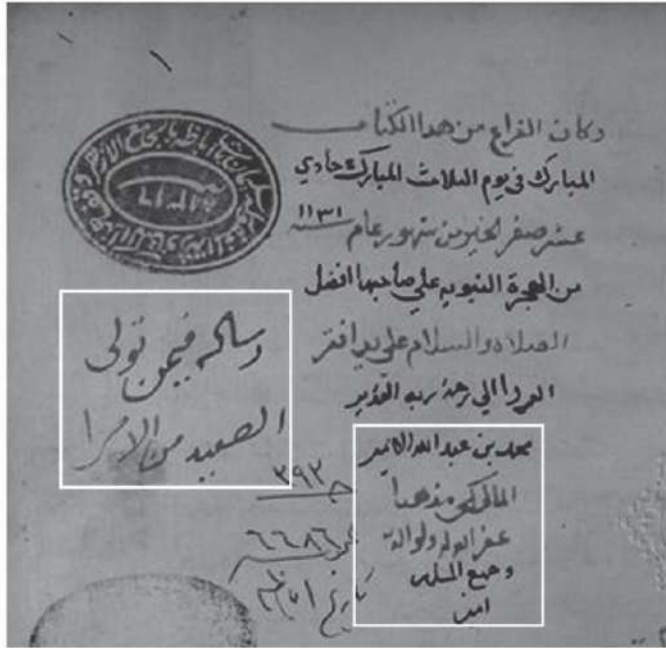 وكان الفراغ من هدا الكتاب
المبارك فى يوم الثلاث المبارك حادي
عشر صفر الخير من شهور عام ١١٣١
من الهجرة النبويه علي صاحبها افضل
الصلاه والسلام علي يد افقر
الورا الي رحمة ربه القدير
محمد بن عبد الله
المالكى مذهبا
غفر الله له ولوالديه
وجميع المسلمين
امين
رسالة فيمن تولى
الصعيد من الامرا
٣٩٢
٦٦٨٦
تاريخ اباظه
١٣١٦